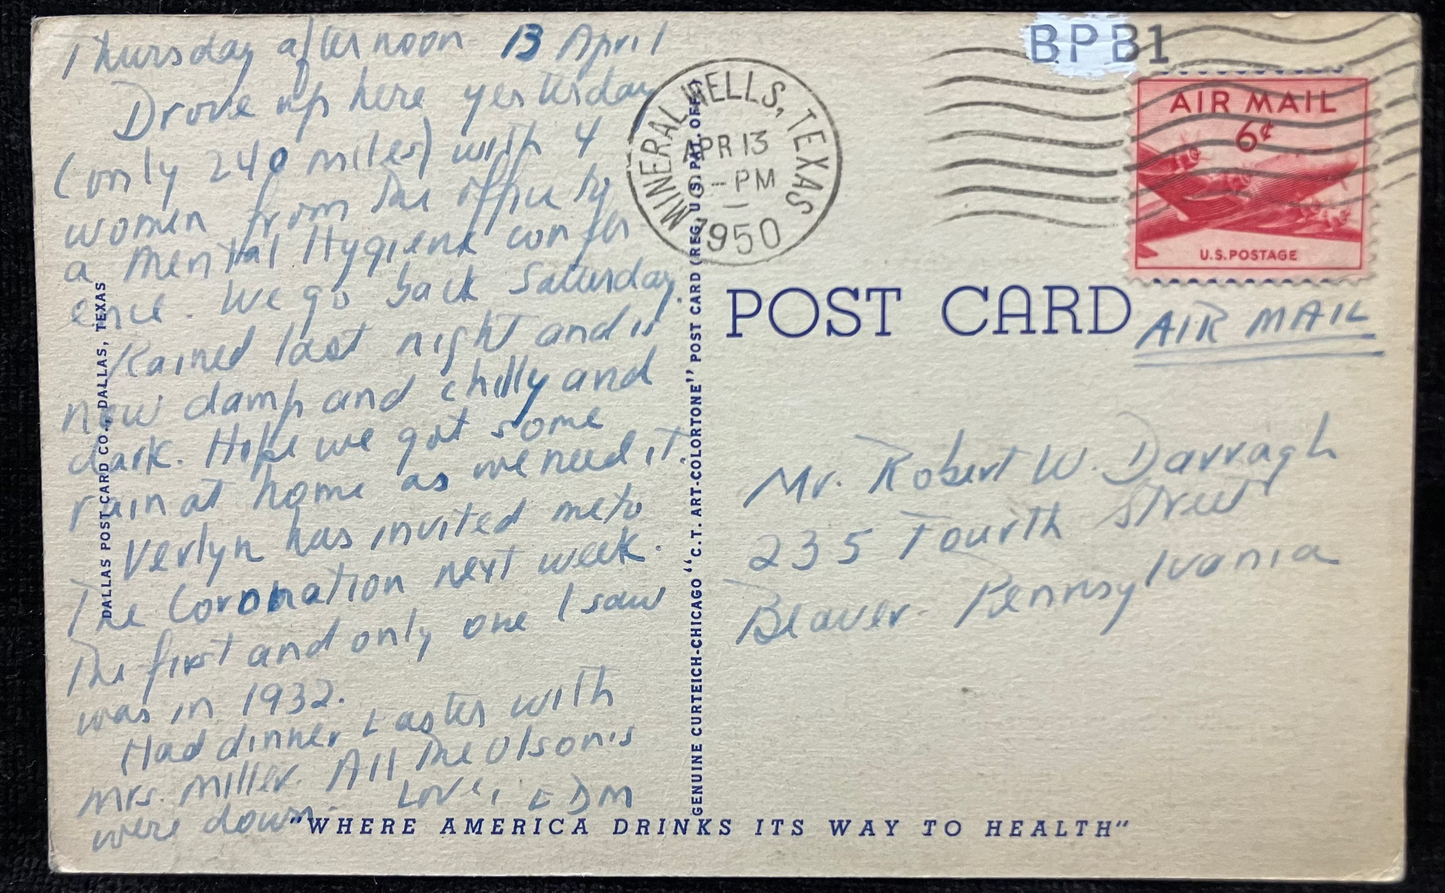 Thursday afternoon 13 April
Drove up here yesterday
(only 240 miles) with 4
women from the office to
a Mental Hygiene confer
ence. We go back Saturday.
Rained last night and is
now damp and chilly and
dark. Hope we got some
rain at home as we need it.
Verlyn has invited me to
The Coronation next week.
The first and only one I saw
was in 1932.
Had dinner Easter with
Mrs. Miller. All the Olson's
were down. Love, EDM
DALLAS POST CARD CO., DALLAS, TEXAS
GENUINE CURTEICH-CHICAGO "C.T. ART-COLORTONE" POST CARD (REG. U.S. PAT. OFF.)
"WHERE AMERICA DRINKS ITS WAY TO HEALTH"
MINERAL WELLS, TEXAS
APR 13
-PM
1950
BPB1
AIR MAIL
6¢
U.S. POSTAGE
POST CARD
AIR MAIL
Mr. Robert W. Darragh
235 Fourth Street
Beaver- Pennsylvania